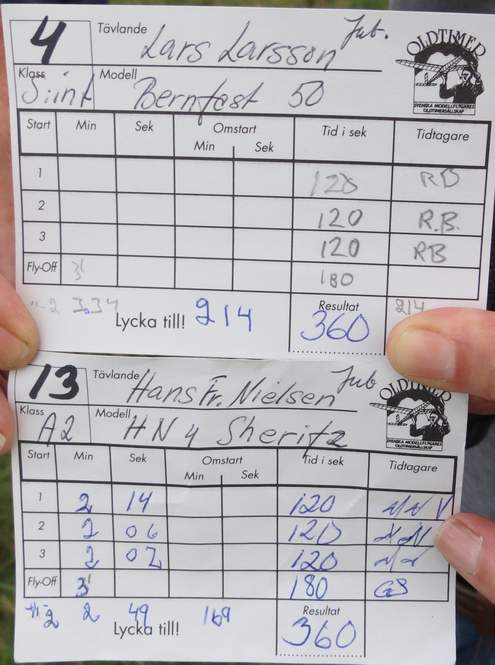 4 Tävlande Lars Larsson Jub.
OLDTIMER
SVENSKA MODELLFLYGARES OLDTIMERSÄLLSKAP
Klass S:int Modell Bernfest 50
Start Min Sek Omstart Min Sek Tid i sek Tidtagare
1 120 RB
2 120 R.B.
3 120 RB
Fly-Off 3' 180
2 3,34 Lycka till! 214 Resultat 360 214
13 Tävlande Hans Fr. Nielsen Jub
OLDTIMER
SVENSKA MODELLFLYGARES OLDTIMERSÄLLSKAP
Klass A2 Modell HN 4 Sheritz
Start Min Sek Omstart Min Sek Tid i sek Tidtagare
1 2 14 120
2 2 06 120
3 2 02 120
Fly-Off 3' 180 GS
2 2 49 169 Lycka till! Resultat 360